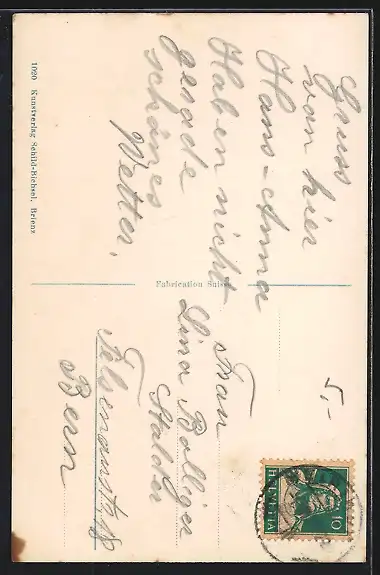 Gruss
von hier
Hans-Anna
Haben nicht
gerade
schönes
Wetter.
1020 Kunstverlag Schild-Bichsel, Brienz
Fabrication Suisse
5,-
Frau
Lina Bolliger
Stalder
Bern
HELVETIA
10